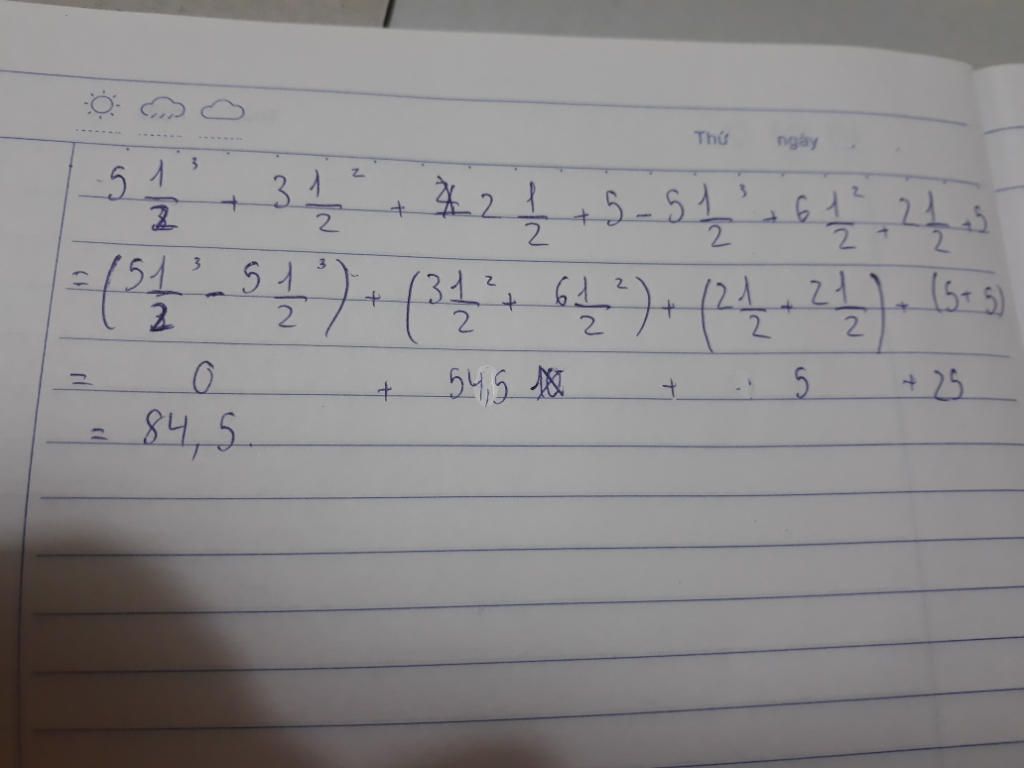 Thứ ngày
5 1/2 ³ + 3 1/2 ² + 2 1/2 + 5 - 5 1/2 ³ + 6 1/2 ² + 2 1/2 + 5
= (5 1/2 ³ - 5 1/2 ³) + (3 1/2 ² + 6 1/2 ²) + (2 1/2 + 2 1/2) + (5 + 5)
= 0 + 54,5 + 5 + 25
= 84,5.